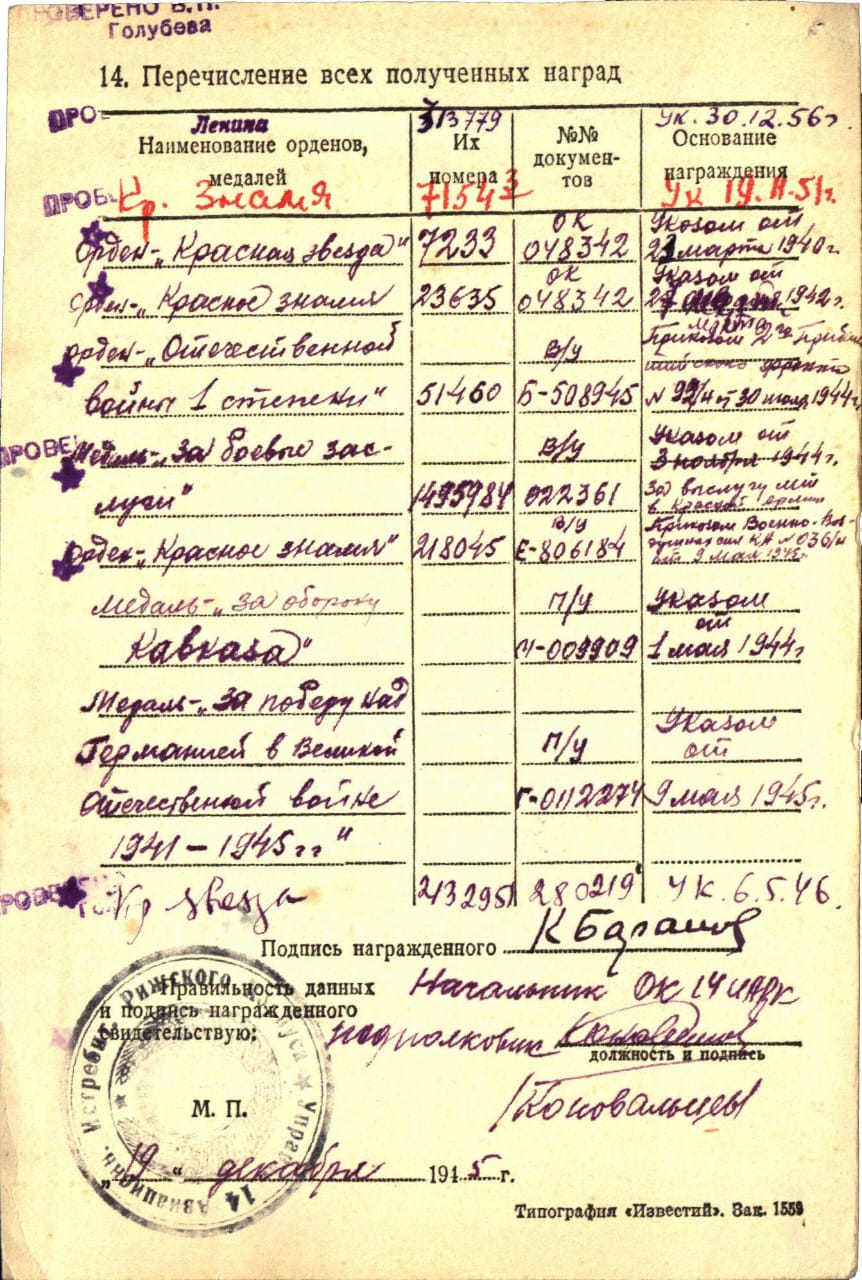 ПРОВЕРЕНО В.П.
Голубева
14. Перечисление всех полученных наград
ПРО
Ленина 313779 Ук. 30.12.56г
Наименование орденов, медалей Их номера №№ документов Основание награждения
ПРОВЕ
Кр. Знамя 71543 Ук 19.II.51г.
ОК Указом от
Орден-„Красная звезда" 7233 048342 21 марта 1940г.
ОК Указом от
Орден-„Красное знамя" 23635 048342 27 1942г.
марта
орден-„Отечественной в/у Приказом 2го Прибал
тийского фронта
войны 1 степени" 51460 Б-508945 N 99/н от 30 июля 1944г
ПРОВЕ
Медаль-„За боевые зас- в/у Указом от
3 ноября 1944г.
луги" 1495984 022361 За выслугу лет
в Красной Армии
в/у Приказом Военно-Воз-
Орден-„Красное знамя" 218045 Е-806184 душных сил КА N 036/н
от 9 мая 1945г.
Медаль-„За оборону п/у Указом
от
Кавказа" Ч-009909 1 мая 1944г
Медаль-„За победу над
Указом
Германией в Великой п/у от
Отечественной войне Г-0112274 9 мая 1945г.
1941-1945гг"
ПРОВЕ
Кр звезда 213295 280219 УК. 6.5.46.
Подпись награжденного К Баранов
Правильность данных Начальник ОК 14 ИАРК
и подпись награжденного
свидетельствую: подполковник
должность и подпись
М. П. /Коновальцев/
„19" декабря 1945 г.
14 Авиацион. Истребит. Рижского Корпуса ★ Управ
Типография «Известий». Зак. 1559